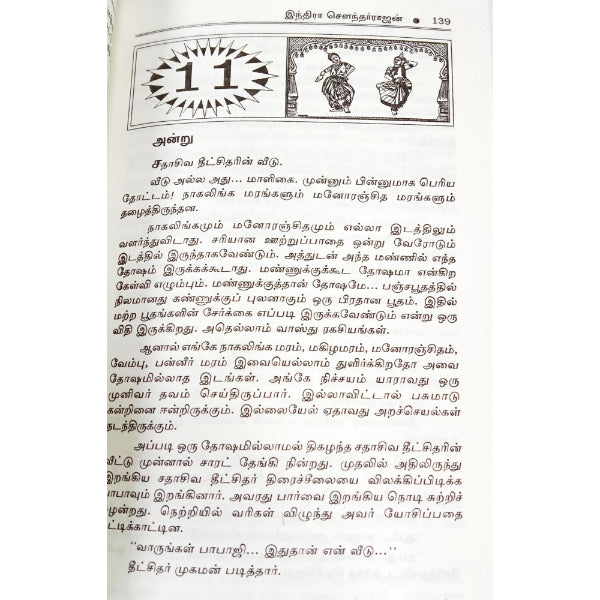 இந்திரா சௌந்தர்ராஜன் ● 139
11
அன்று
சதாசிவ தீட்சிதரின் வீடு.
வீடு அல்ல அது... மாளிகை. முன்னும் பின்னுமாக பெரிய
தோட்டம்! நாகலிங்க மரங்களும் மனோரஞ்சித மரங்களும்
தழைத்திருந்தன.
நாகலிங்கமும் மனோரஞ்சிதமும் எல்லா இடத்திலும்
வளர்ந்துவிடாது. சரியான ஊற்றுப்பாதை ஒன்று வேரோடும்
இடத்தில் இருந்தாகவேண்டும். அத்துடன் அந்த மண்ணில் எந்த
தோஷம் இருக்கக்கூடாது. மண்ணுக்குக்கூட தோஷமா என்கிற
கேள்வி எழும்பும். மண்ணுக்குத்தான் தோஷமே... பஞ்சபூதத்தில்
நிலமானது கண்ணுக்குப் புலனாகும் ஒரு பிரதான பூதம். இதில்
மற்ற பூதங்களின் சேர்க்கை எப்படி இருக்கவேண்டும் என்று ஒரு
விதி இருக்கிறது. அதெல்லாம் வாஸ்து ரகசியங்கள்.
ஆனால் எங்கே நாகலிங்க மரம், மகிழமரம், மனோரஞ்சிதம்,
வேம்பு, பன்னீர் மரம் இவையெல்லாம் துளிர்க்கிறதோ அவை
தோஷமில்லாத இடங்கள். அங்கே நிச்சயம் யாராவது ஒரு
முனிவர் தவம் செய்திருப்பார். இல்லாவிட்டால் பசுமாடு
கன்றினை ஈன்றிருக்கும். இல்லையேல் ஏதாவது அறச்செயல்கள்
நடந்திருக்கும்.
அப்படி ஒரு தோஷமில்லாமல் திகழ்ந்த சதாசிவ தீட்சிதரின்
வீட்டு முன்னால் சாரட் தேங்கி நின்றது. முதலில் அதிலிருந்து
இறங்கிய சதாசிவ தீட்சிதர் திரைச்சீலையை விலக்கிப்பிடிக்க
பாபாவும் இறங்கினார். அவரது பார்வை இறங்கிய நொடி சுற்றிச்
சுழன்றது. நெற்றியில் வரிகள் விழுந்து அவர் யோசிப்பதை
ட்டிக்காட்டின.
"வாருங்கள் பாபாஜி... இதுதான் என் வீடு..."
தீட்சிதர் முகமன் படித்தார்.